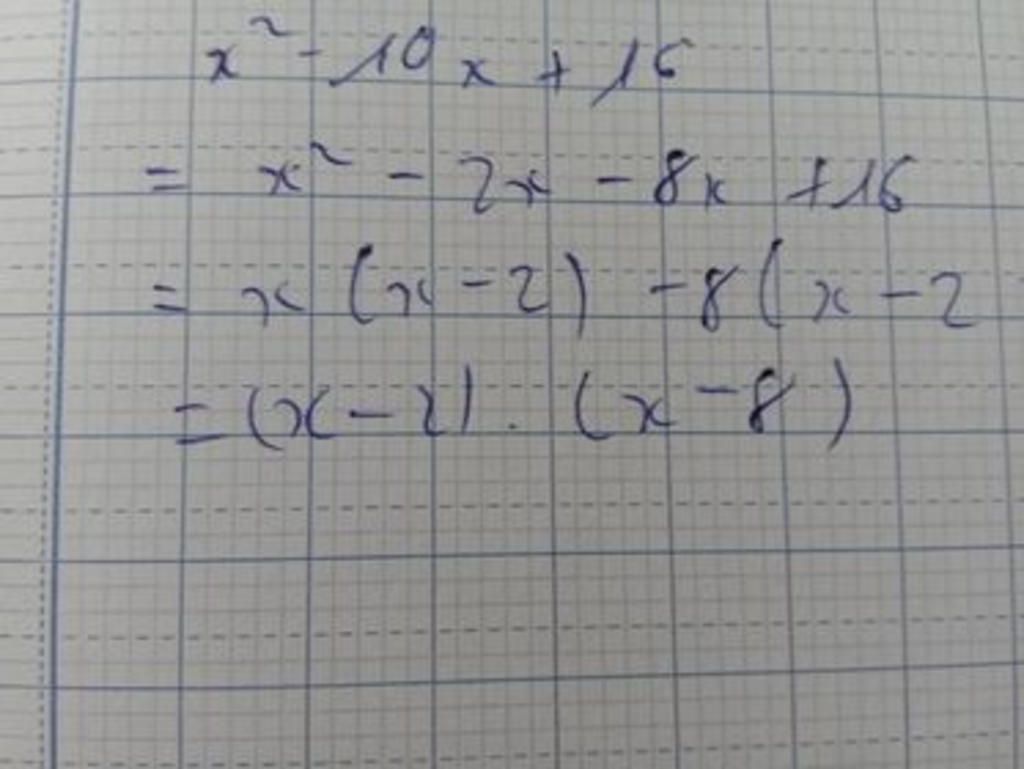 x² - 10x + 16
= x² - 2x - 8x + 16
= x (x - 2) - 8 (x - 2
= (x - 2) . (x - 8)